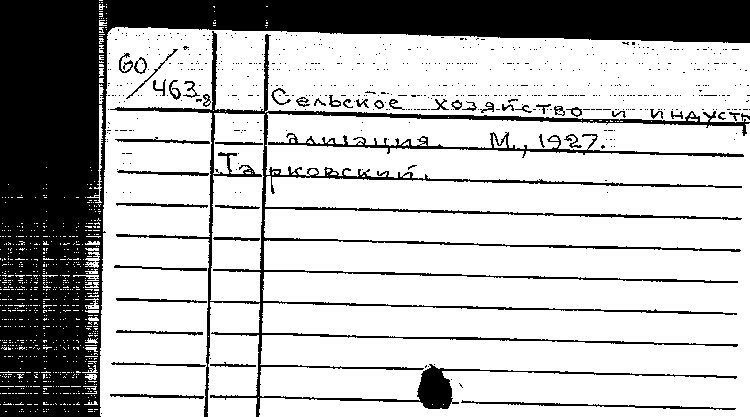 60/463-8
Сельское хозяйство и индустр
ализация. М., 1927.
Тарковский.